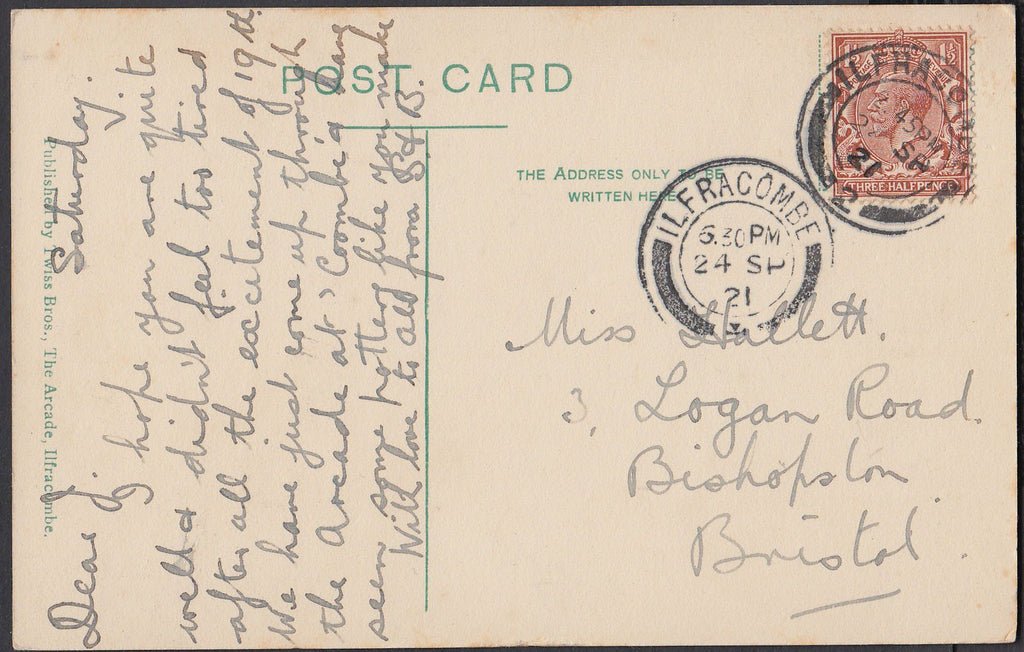 POST CARD
THE ADDRESS ONLY TO BE
WRITTEN HERE
Published by Twiss Bros., The Arcade, Ilfracombe.
Saturday.
Dear J. I hope you are quite
well & didn't feel too tired
after all the excitement of 19th
We have just come up through
the Arcade at Coombe's & have
seen some pottery like you make
With love to all from
B.
THREE HALFPENCE
ILFRACOMBE
45PM
21
ILFRACOMBE
6.30PM
24 SP
21
Miss Hallett.
3, Logan Road.
Bishopston
Bristol.